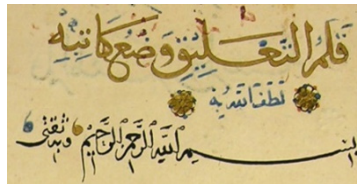 قلم التعليق وضع كاتبه
لطف الله به
بسم الله الرحمن الرحيم وبه ثقتي